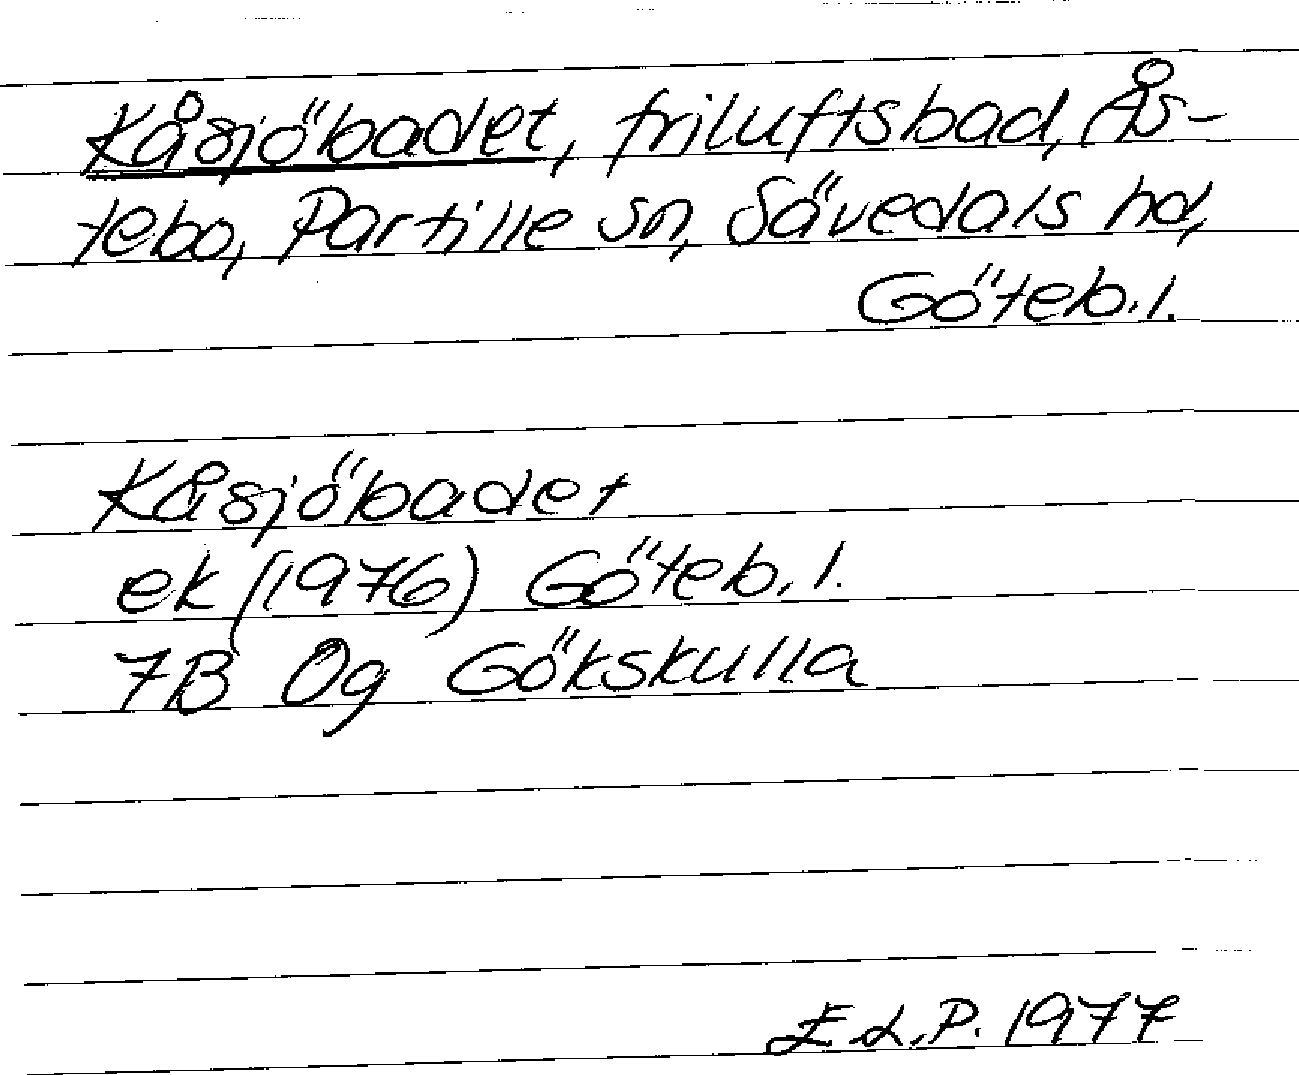 Kåsjöbadet, friluftsbad, Ås-
tebo, Partille sn, Sävedals hd,
Göteb. l.
Kåsjöbadet
ek (1976) Göteb. l.
7B 0g Gökskulla
E.L.P. 1977